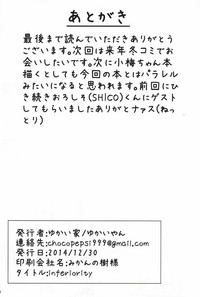 あとがき
最後まで読んでいただきありがとう
ございます。次回は来年冬コミでお
会いしたいです。次に小梅ちゃん本
描くとしても今回の本とはパラレル
みたいになると思われます。前回にひ
き続きおろしそ(SHICO)くんにゲスト
してもらいましたありがとナァス(ねっ
とり)
発行者:ゆかい家/ゆかいやん
連絡先:chocopepsi999@gmail.com
発行日:2014/12/30
印刷会社名:みかんの樹様
タイトル:interiority